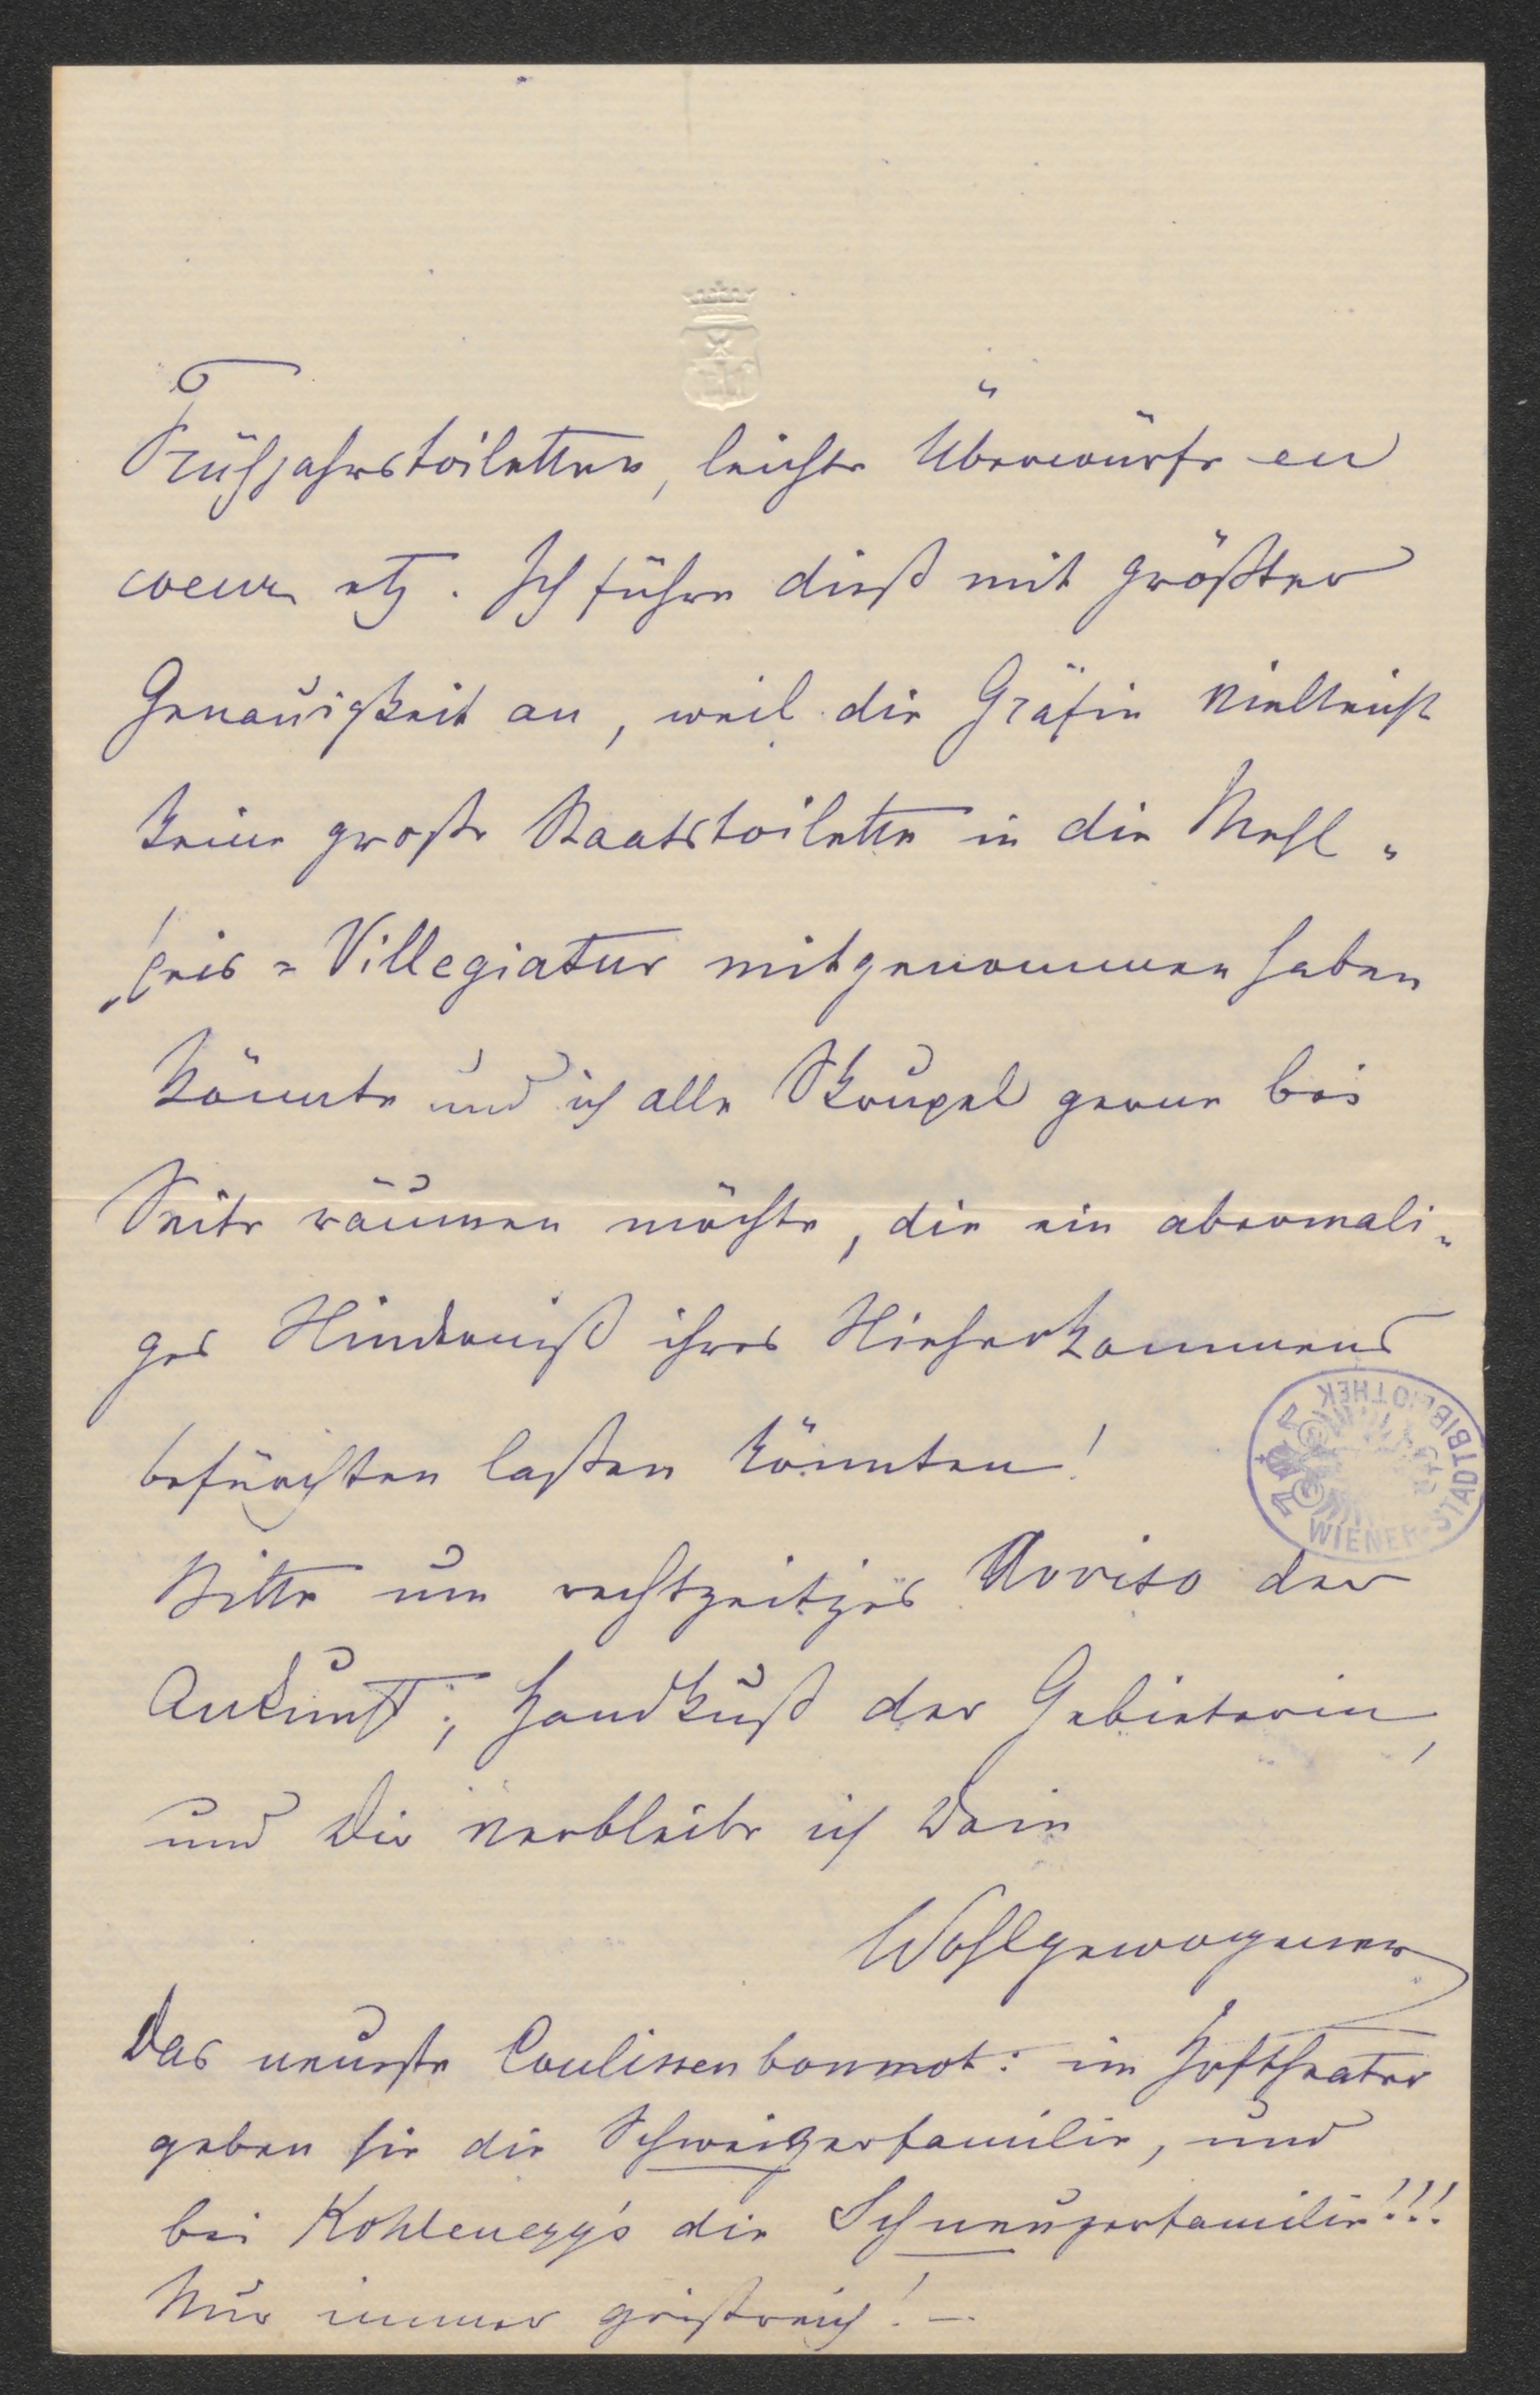 Frühjahrstoiletten, leichte Überwürfe en
coeur etz. Ich führe dieß mit größter
Genauigkeit an, weil die Gräfin vielleicht
keine große Staatstoilette in die Mehl-
speis-Villegiatur mitgenommen haben
könnte und ich alle Skrupel gerne bei
Seite räumen möchte, die ein abermali-
ges Hinderniß ihres Hieherkommens
befürchten laßen könnten!
Bitte um rechtzeitiges Avviso der
Ankunft; Handkuß der Gebieterin,
und Dir verbleibe ich Dein
Wohlgewogener
Das neueste Coulissenbonmot: im Hoftheater
geben sie die Schweizerfamilie, und
bei Kohlenegg's die Schneuzerfamilie!!!
Nur immer geistreich! –
WIENER STADTBIBLIOTHEK